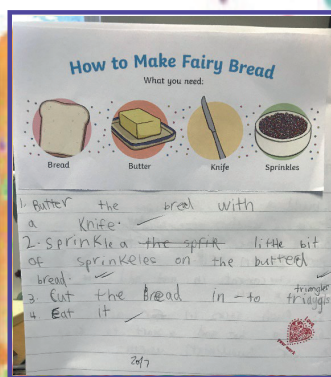 How to Make Fairy Bread
What you need:
Bread Butter Knife Sprinkles
1. Butter the bred with
a Knife.
2. Sprinkle a the sptr little bit
of sprinkeles on the butterd
bread.
triangles
3. Cut the Bread in - to tridygls
4 Eat it